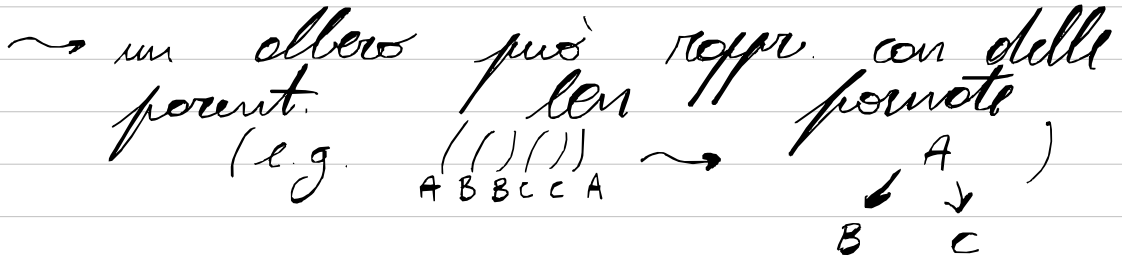 ~> un albero può rappr. con delle
parent. ben formate
(e.g. (()()) ~> A )
A B B C C A
B C